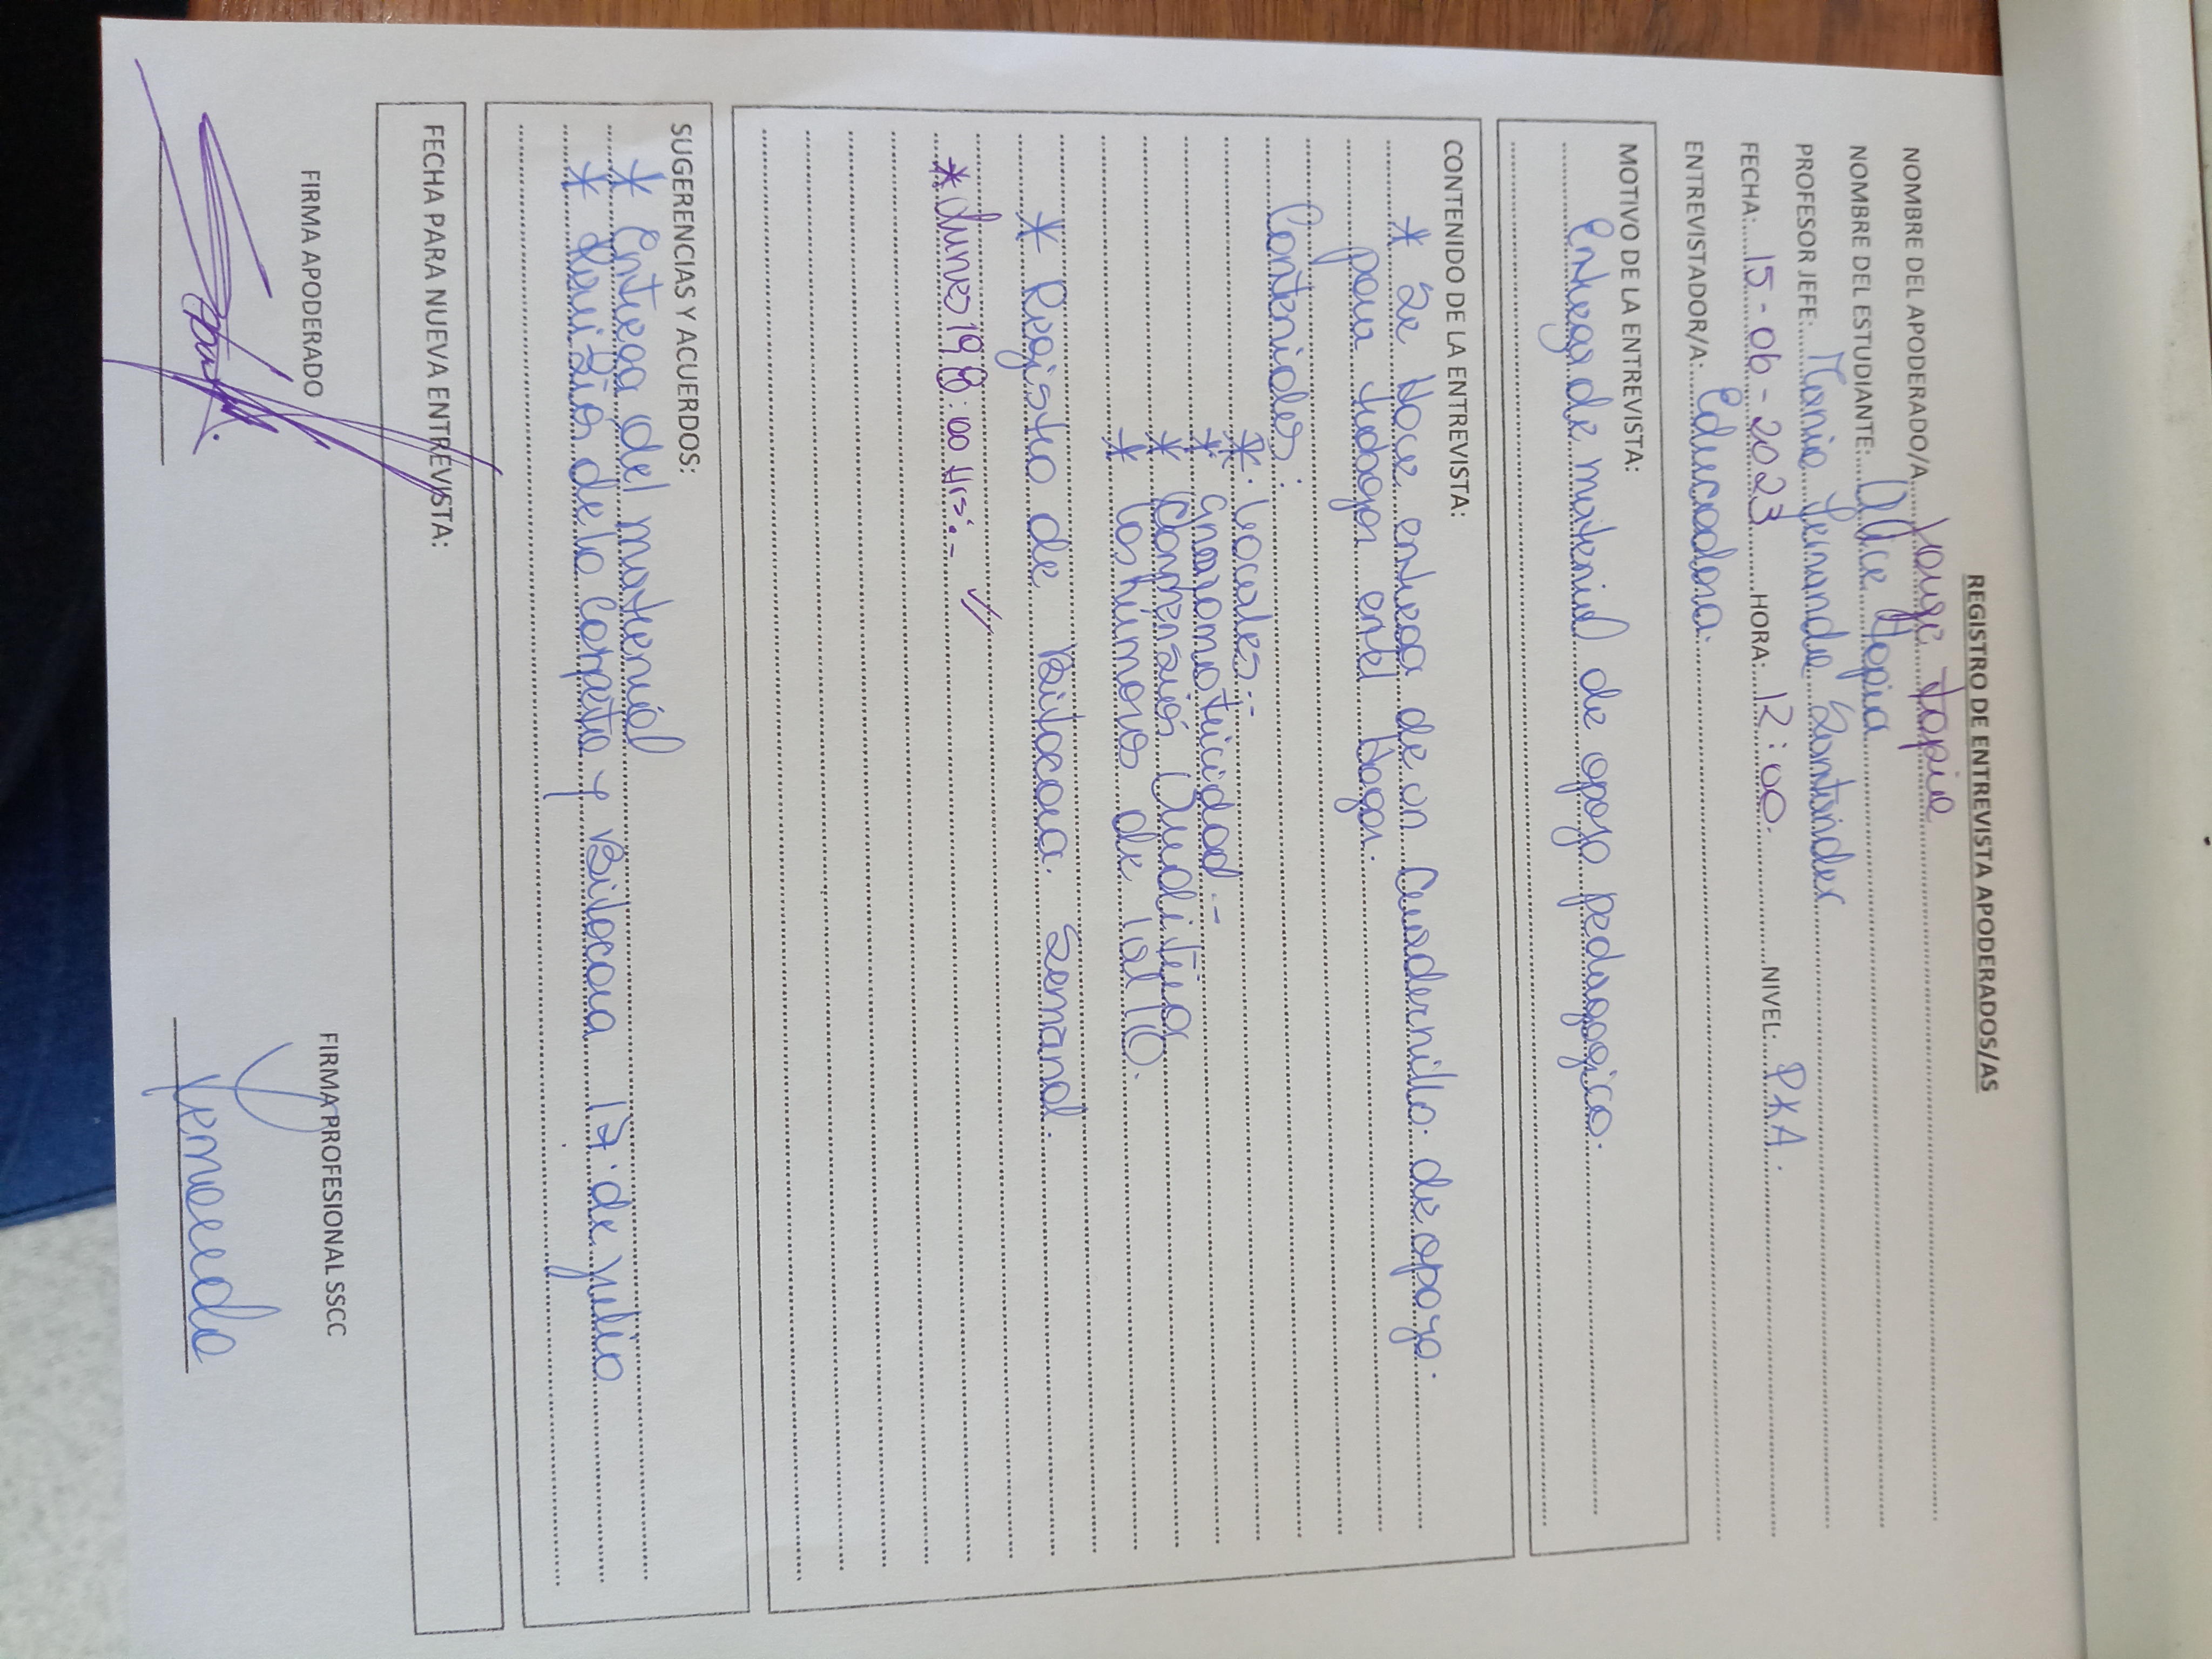 REGISTRO DE ENTREVISTA APODERADOS/AS
NOMBRE DEL APODERADO/A Jorge Tapia
NOMBRE DEL ESTUDIANTE: Alice Tapia
PROFESOR JEFE: María Fernanda Santander
FECHA: 15-06-2023 HORA: 12:00. NIVEL: PKA.
ENTREVISTADOR/A: Educadora.
MOTIVO DE LA ENTREVISTA:
Entrega de material de apoyo pedagogico.
CONTENIDO DE LA ENTREVISTA:
* Se Hace entrega de un Cuadernillo de apoyo.
para trabajar en el Hogar.
Contenidos:
* Vocales.-
* Grafomotricidad.-
* Comprensión Auditiva
* Los números de 1 al 10.
* Registro de Bitacora Semanal.
* Lunes 19 8:00 Hrs.-
SUGERENCIAS Y ACUERDOS:
* Entrega del material
* Revisión de la Carpeta y Bitacora 17 de julio
FECHA PARA NUEVA ENTREVISTA:
FIRMA APODERADO FIRMA PROFESIONAL SSCC